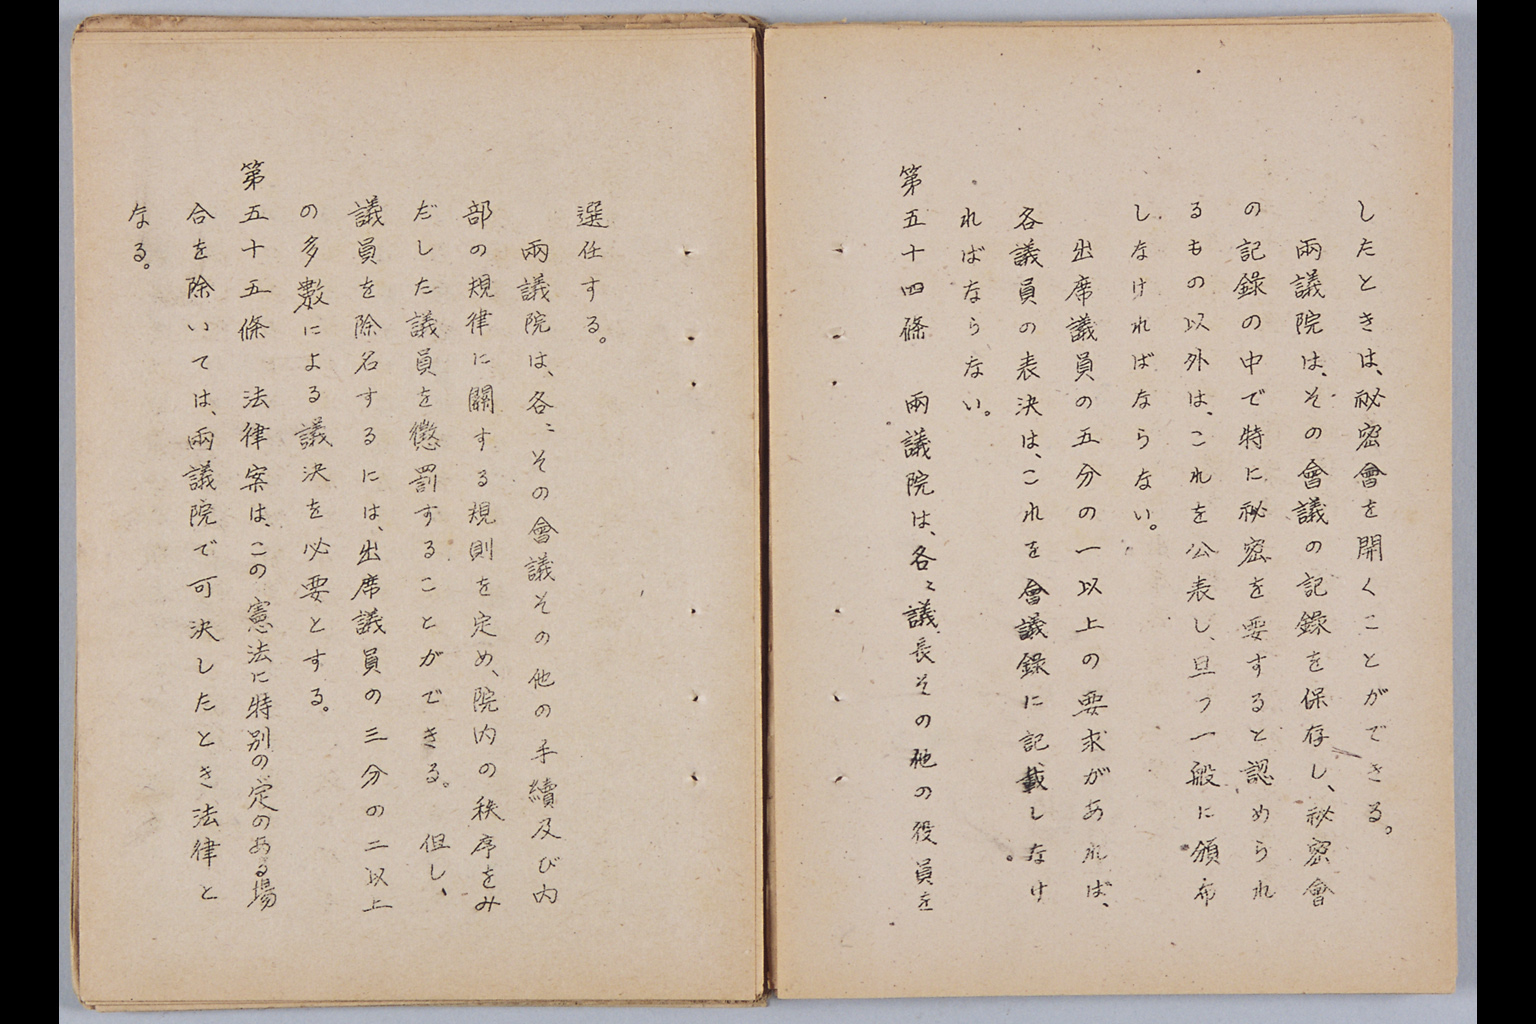 したときは、秘密會を開くことができる。
兩議院は、その會議の記錄を保存し、秘密會
の記錄の中で特に秘密を要すると認められ
るもの以外は、これを公表し、且つ一般に頒布
しなければならない。
出席議員の五分の一以上の要求があれば、
各議員の表決は、これを會議錄に記載しなけ
ればならない。
第五十四條　兩議院は、各〻議長その他の役員を
選任する。
兩議院は、各〻その會議その他の手續及び內
部の規律に關する規則を定め、院內の秩序をみ
だした議員を懲罰することができる。但し、
議員を除名するには、出席議員の三分の二以上
の多數による議決を必要とする。
第五十五條　法律案は、この憲法に特別の定のある場
合を除いては、兩議院で可決したとき法律と
なる。